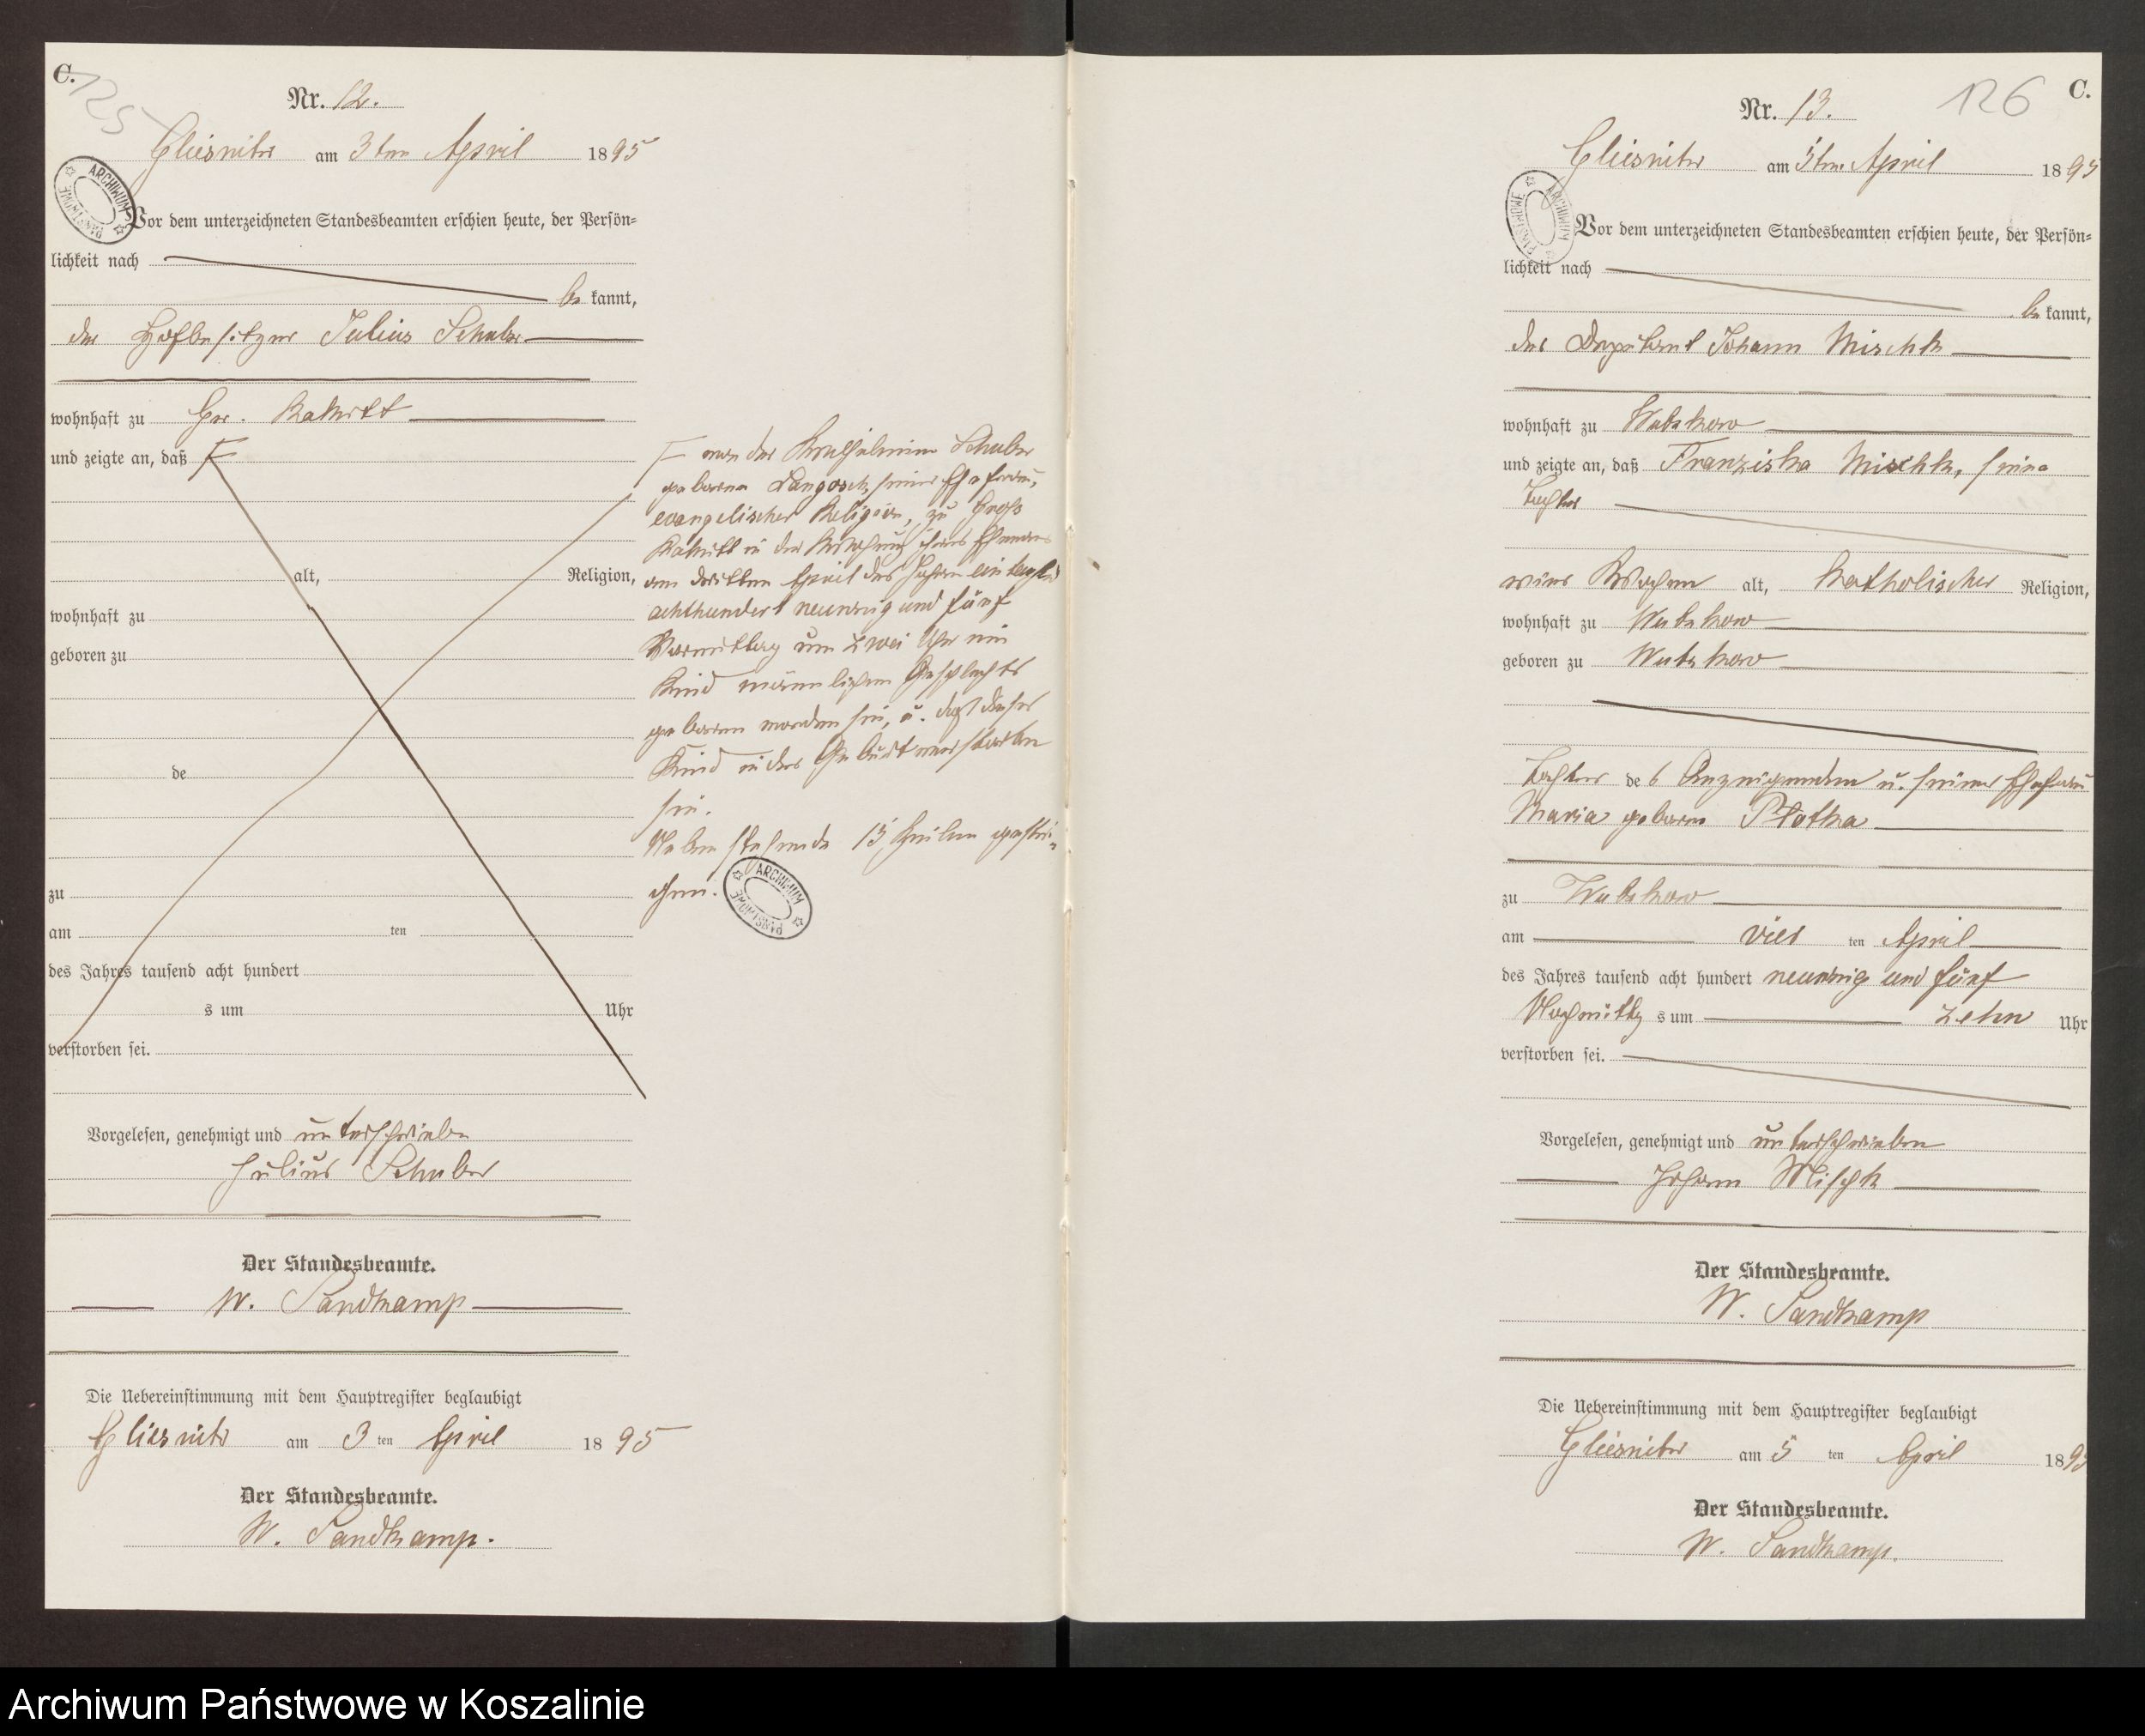 C.
125
Nr. 12.
Gliesnitz am 3ten April 1895
ARCHIWUM PAŃSTWOWE
Vor dem unterzeichneten Standesbeamten erschien heute, der Persön=
lichkeit nach
be kannt,
der Hofbesitzer Julius Schuber
wohnhaft zu Gr. Rakitt
und zeigte an, daß
alt, Religion,
wohnhaft zu
geboren zu
de
zu
am ten
des Jahres tausend acht hundert
s um Uhr
verstorben sei.
von der Wilhelmine Schuber
geborene Langosch, seiner Ehefrau,
evangelischer Religion, zu Groß
Rakitt in der Wohnung ihres Ehemannes
am dritten April des Jahres eintausend
achthundert neunzig und fünf
Vormittag um zwei Uhr ein
Kind männlichen Geschlechts
geboren worden sei, u. daß dieses
Kind in der Geburt verstorben
sei.
Nebenstehende 15 Zeilen gestri=
chen.
ARCHIWUM PAŃSTWOWE
Vorgelesen, genehmigt und unterschrieben
Julius Schuber
Der Standesbeamte.
W. Sandkamp
Die Uebereinstimmung mit dem Hauptregister beglaubigt
Gliesnitz am 3 ten April 1895
Der Standesbeamte.
W. Sandkamp.
126
C.
Nr. 13.
Gliesnitz am 5ten April 1895
ARCHIWUM PAŃSTWOWE
Vor dem unterzeichneten Standesbeamten erschien heute, der Persön=
lichkeit nach
be kannt,
der Deputant Johann Mischk
wohnhaft zu Wutzkow
und zeigte an, daß Franziska Mischk, seine
Tochter
vier Wochen alt, katholischer Religion,
wohnhaft zu Wutzkow
geboren zu Wutzkow
Tochter des Anzeigenden u. seiner Ehefrau
Maria geborne Plotka
zu Wutzkow
am vier ten April
des Jahres tausend acht hundert neunzig und fünf
Nachmittag s um zehn Uhr
verstorben sei.
Vorgelesen, genehmigt und unterschrieben
Johann Mischk
Der Standesbeamte.
W. Sandkamp
Die Uebereinstimmung mit dem Hauptregister beglaubigt
Gliesnitz am 5 ten April 1895
Der Standesbeamte.
W. Sandkamp.
Archiwum Państwowe w Koszalinie